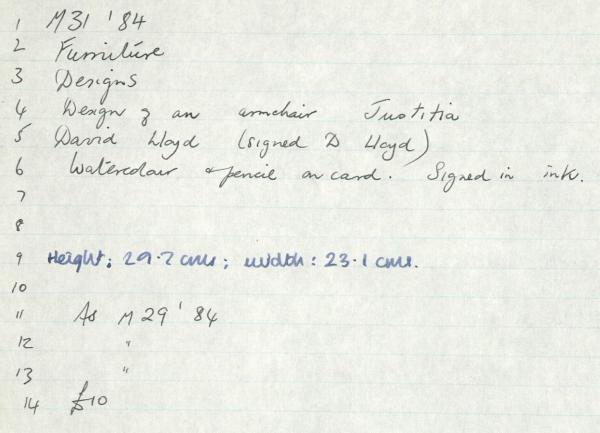 1 M31 '84
2 Furniture
3 Designs
4 Design of an armchair Justitia
5 David Lloyd (signed D Lloyd)
6 Watercolour & pencil on card. Signed in ink.
7
8
9 Height: 29.7 cms; width: 23.1 cms.
10
11 As M29 '84
12 "
13 "
14 £10